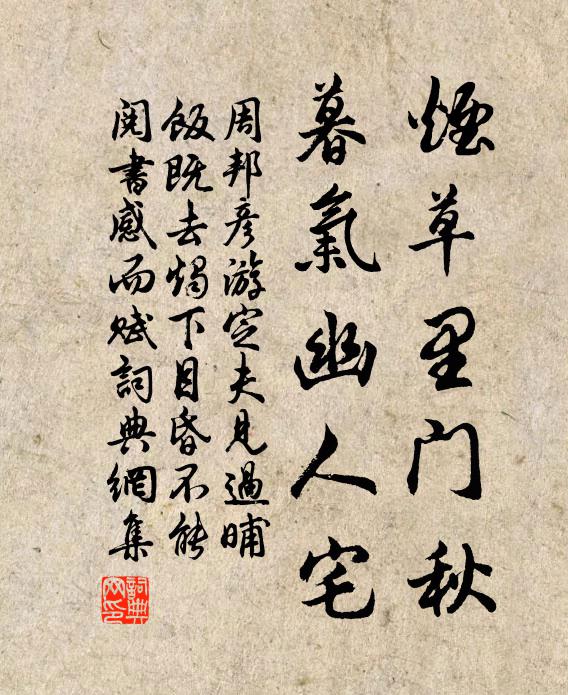 煙草里门秋
暮氣幽人宅
周邦彦游定夫見過晡
飯既去燭下目昏不能
閱書感而賦詞典網集
詞典